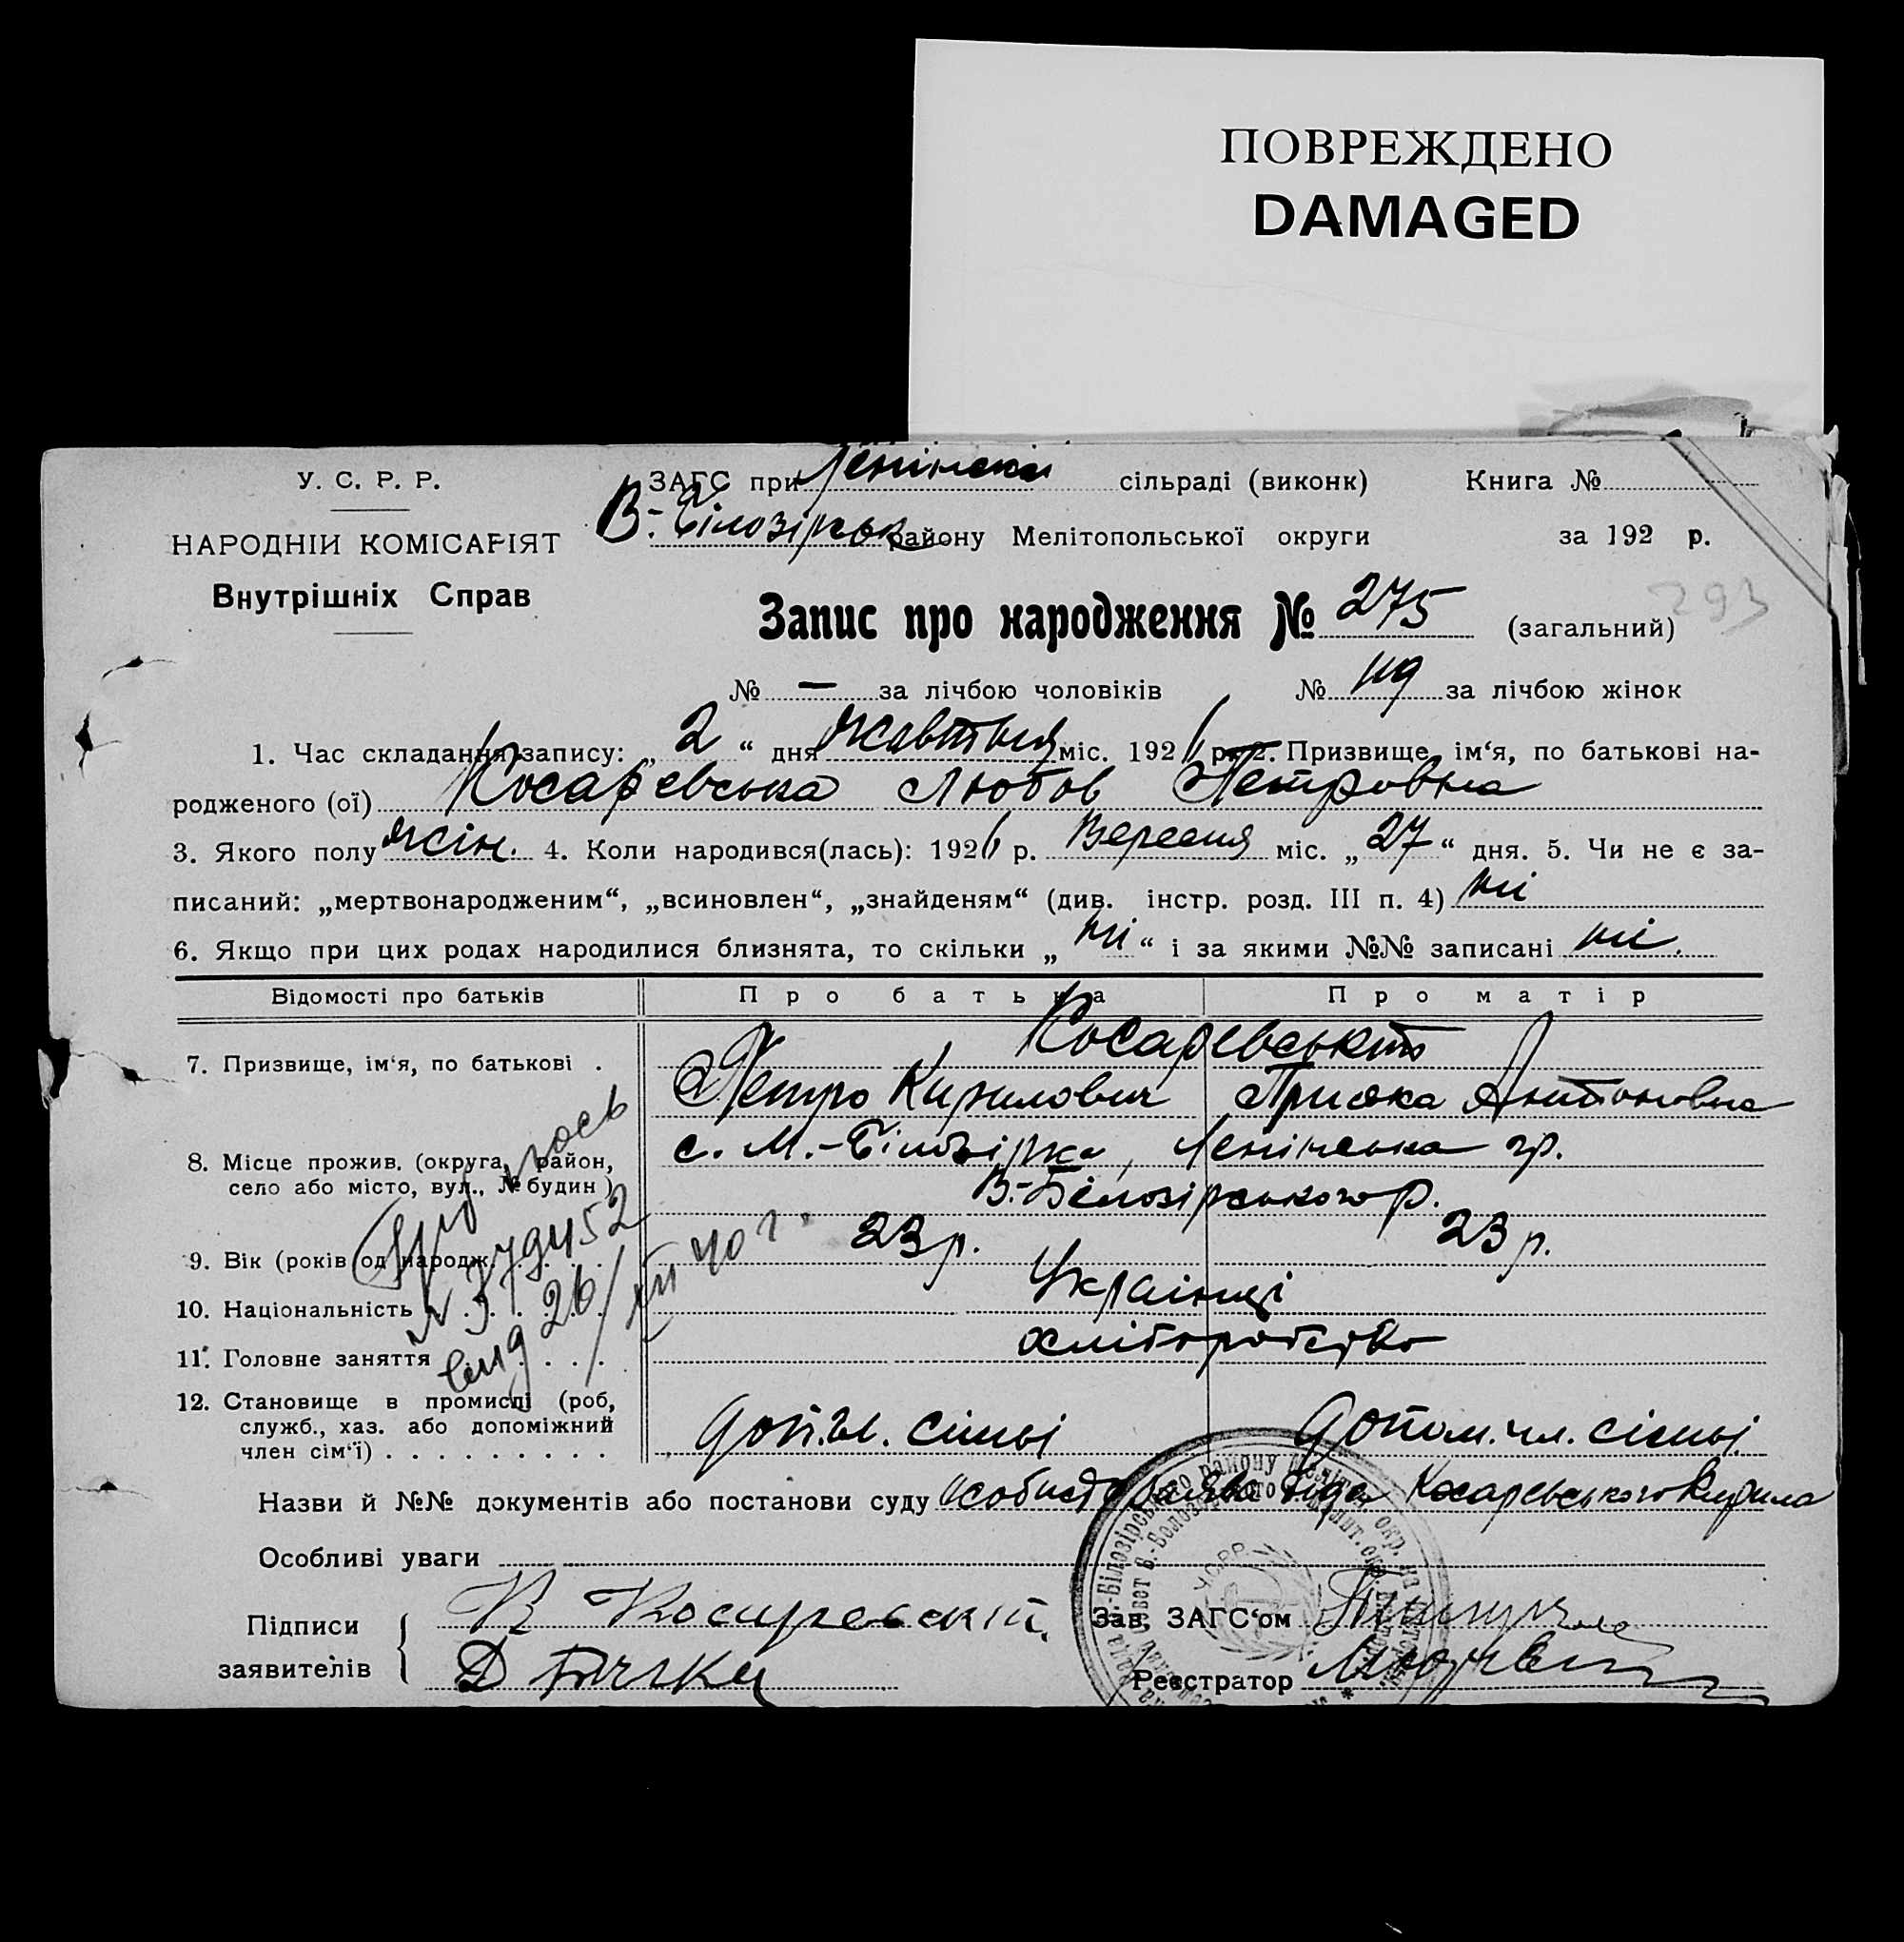 ПОВРЕЖДЕНО
DAMAGED
У. С. Р. Р.
ЗАГС при Ленінскі сільраді (виконк) Книга №
НАРОДНІЙ КОМІСАРІЯТ
В.-Білозірськ району Мелітопольської округи за 192 р.
Внутрішніх Справ
Запис про народження № 275 (загальний)
293
№ — за лічбою чоловіків № 119 за лічбою жінок
1. Час складання запису: „ 2 “ дня жавтня міс. 192 р. 2. Призвище, ім‘я, по батькові на-
родженого (ої) Косаревська Любов Петровна
3. Якого полу жін. 4. Коли народився(лась): 192 р. Вересня міс. „ 27 “ дня. 5. Чи не є за-
писаний: „мертвонародженим“, „всиновлен“, „знайденям“ (див. інстр. розд. III п. 4) ні
6. Якщо при цих родах народилися близнята, то скільки „ ні “ і за якими №№ записані ні.
Відомості про батьків Про батька Про матір
Косаревські
7. Призвище, ім‘я, по батькові .
Петро КириловичПриська Антоновна
8. Місце прожив. (округа, район,
село або місто, вул., № будин)
с. М.-Білозірка, Ленінська гр.
В.-Білозірського р.
9. Вік (років од народж. 23 р. 23 р.
10. Національність Українці
11. Головне заняття хліборобство
12. Становище в промислі (роб,
служб., хаз. або допоміжний
член сім‘ї)
доп. чл. сімьі допом. чл. сімьі
Назви й №№ документів або постанови суду особиста заява діда Косаревського Кирила
Особливі уваги
Підписи
заявителів
К Косаревскій
Зав. ЗАГС‘ом
Д
Реєстратор
У.С.Р.Р.